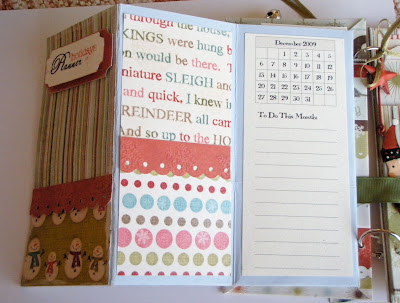 Planner
through the house,
KINGS were hung b
on would be there. T
niature SLEIGH and
and quick, I knew i
REINDEER all cam
And so up to the HO
December 2009
1 2 3 4 5
6 7 8 9 10 11 12
13 14 15 16 17 18 19
20 21 22 23 24 25 26
27 28 29 30 31
To Do This Month: